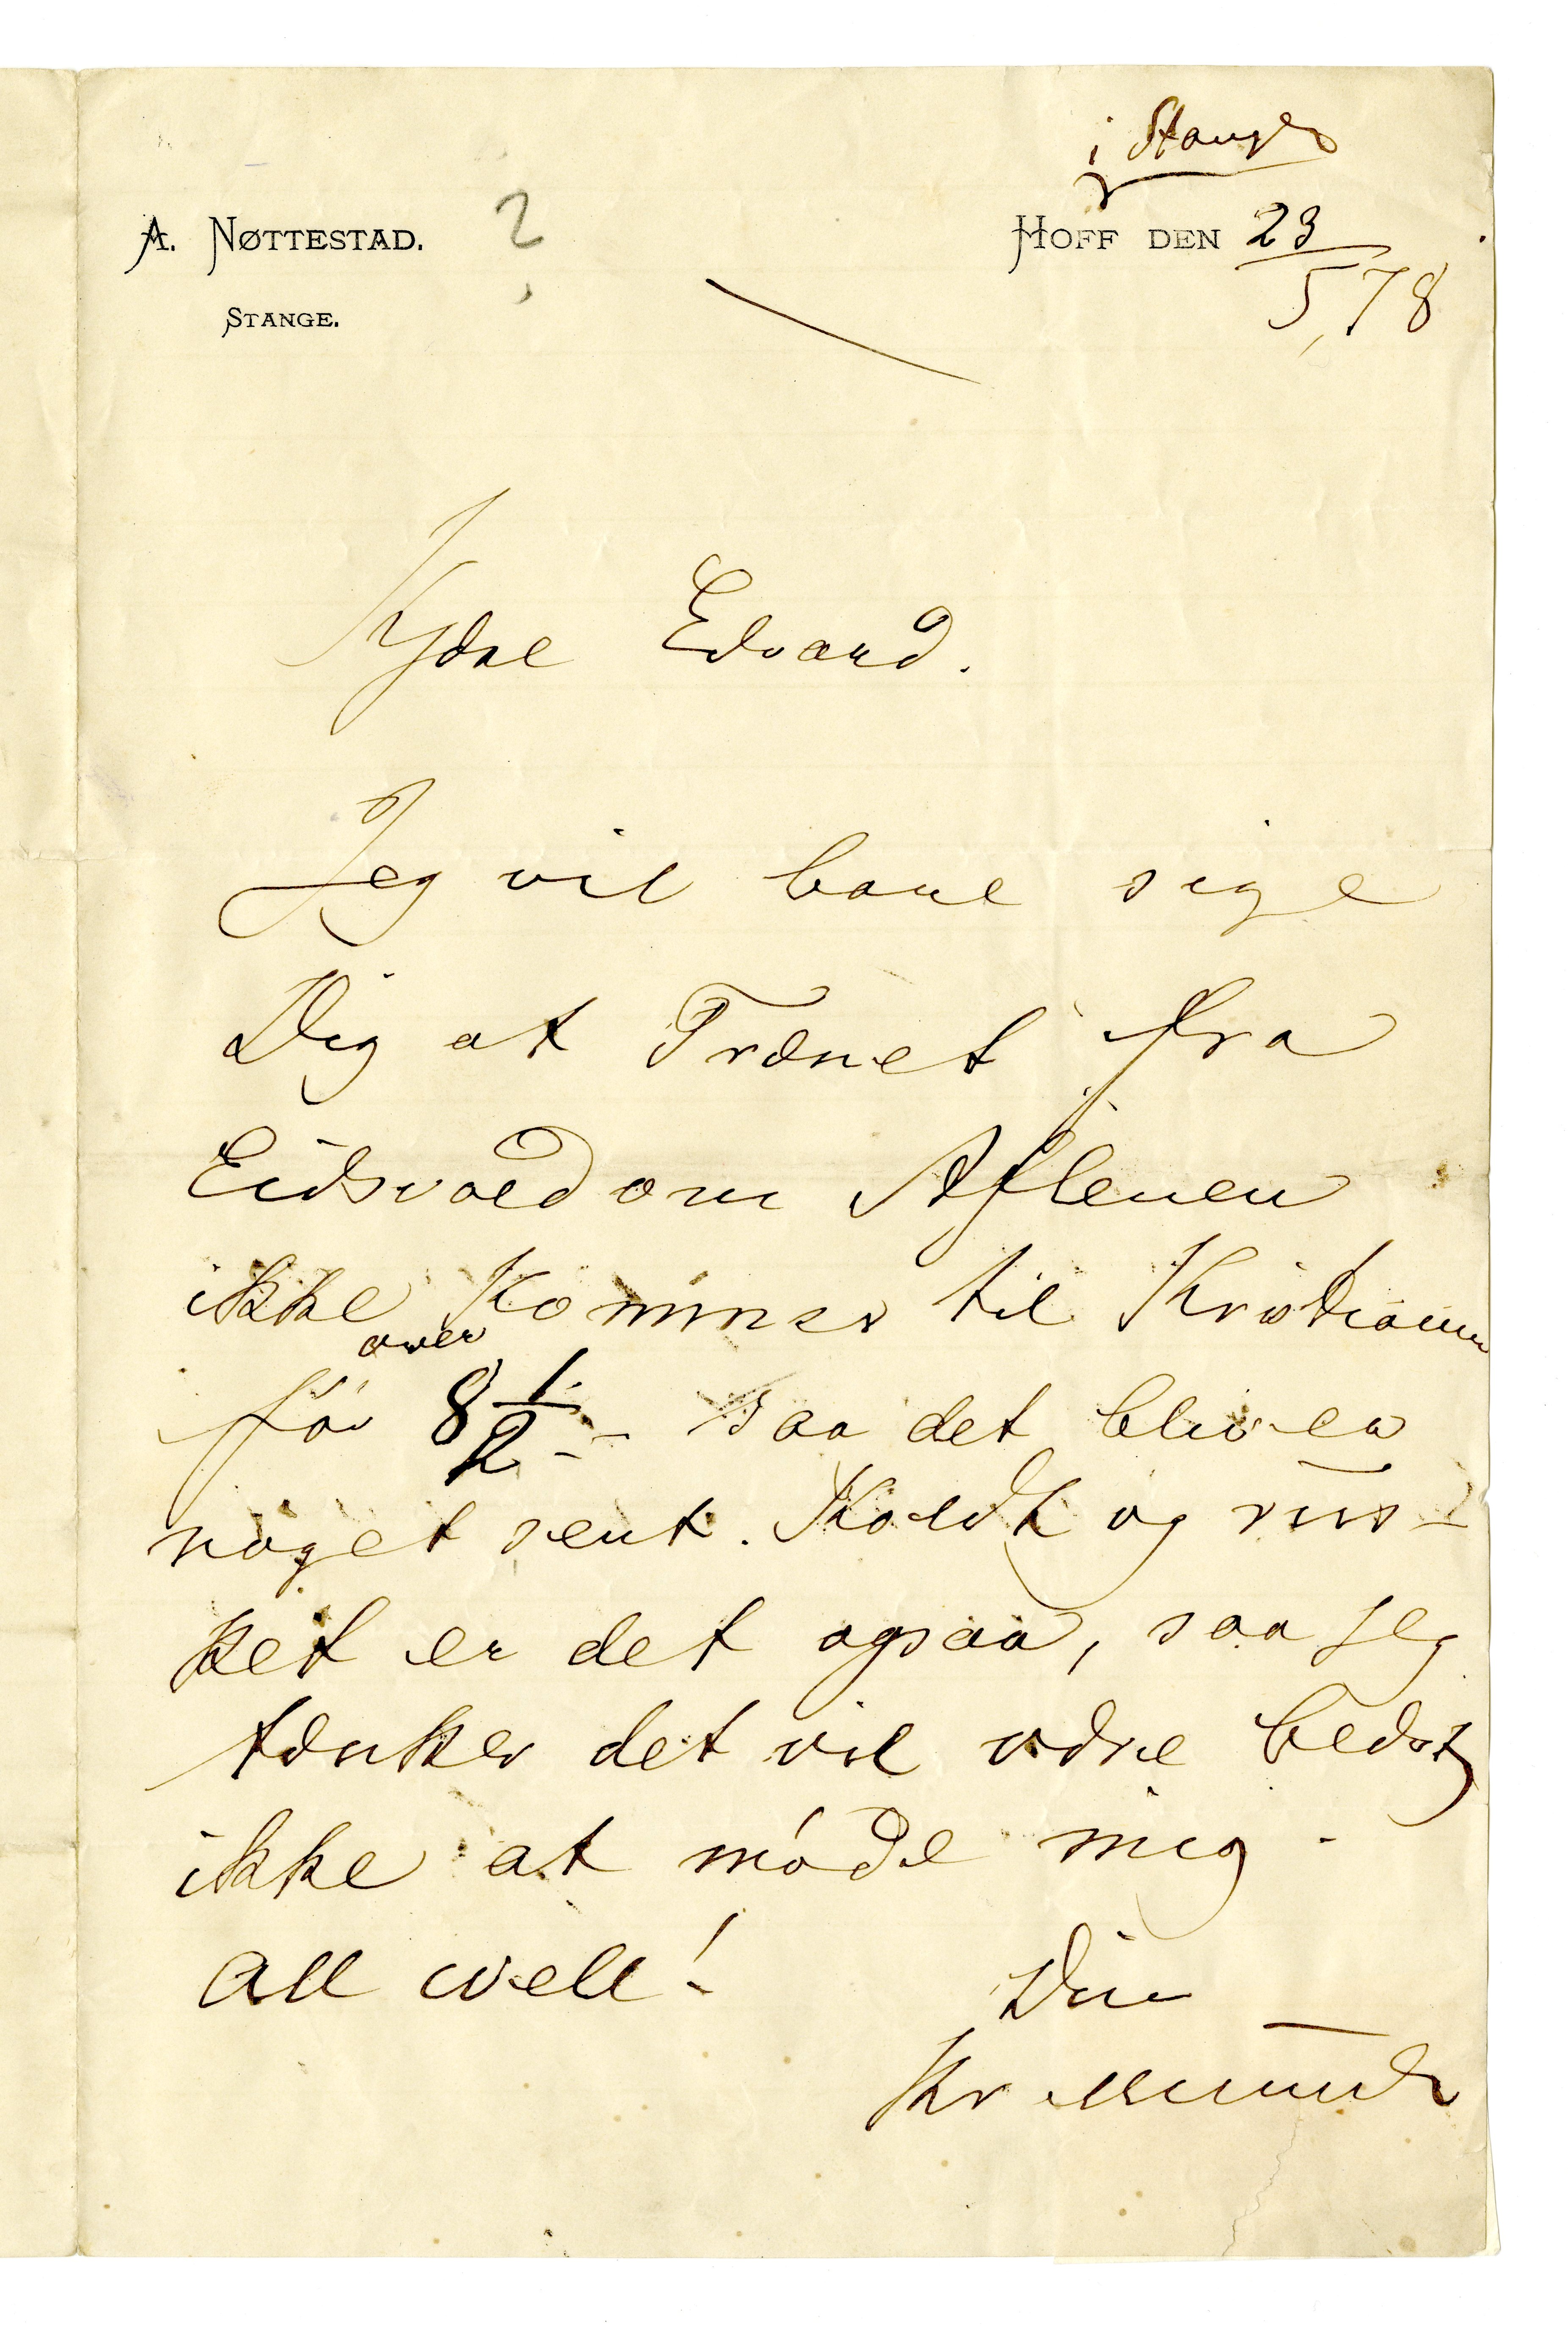 i Stange
A. NØTTESTAD. ? HOFF DEN 23/5,78
STANGE.
Kjære Edvard.
Jeg vil bare sige
Dig at Trænet fra
Eidsvold om Aftenen
ikke kommer til Kristiania
før over 8 1/2 - saa det bliver
noget sent. Koldt og rus-
ket er det ogsaa, saa jeg
tænker det vil være bedst
ikke at møde mig.
All well!
Din
Kr Munch